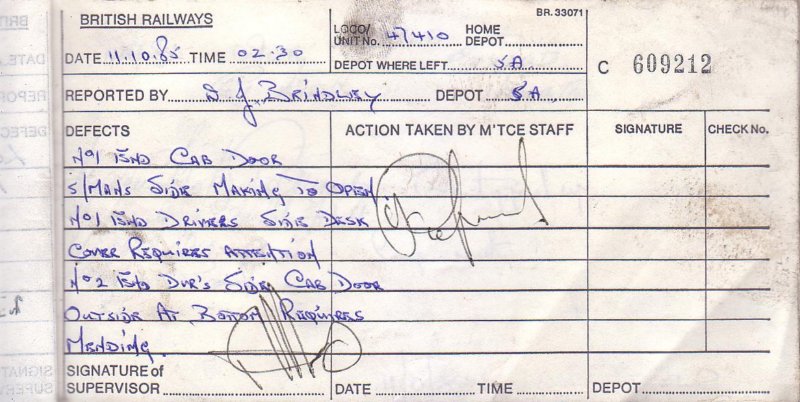 BR. 33071
BRITISH RAILWAYS
LOCO/ UNIT No. 47410 HOME DEPOT
DATE 11.10.85 TIME 02.30
DEPOT WHERE LEFT 5A
C 609212
REPORTED BY D J BRINDLEY DEPOT 5A
DEFECTS ACTION TAKEN BY M'TCE STAFF SIGNATURE CHECK No.
No1 END CAB DOOR
S/MANS SIDE MAKING TO OPEN
No1 END DRIVERS SIDE DESK
COVER REQUIRES ATTENTION
No2 END DVR'S SIDE CAB DOOR
OUTSIDE AT BOTTOM REQUIRES
MENDING.
SIGNATURE of
SUPERVISOR DATE TIME DEPOT